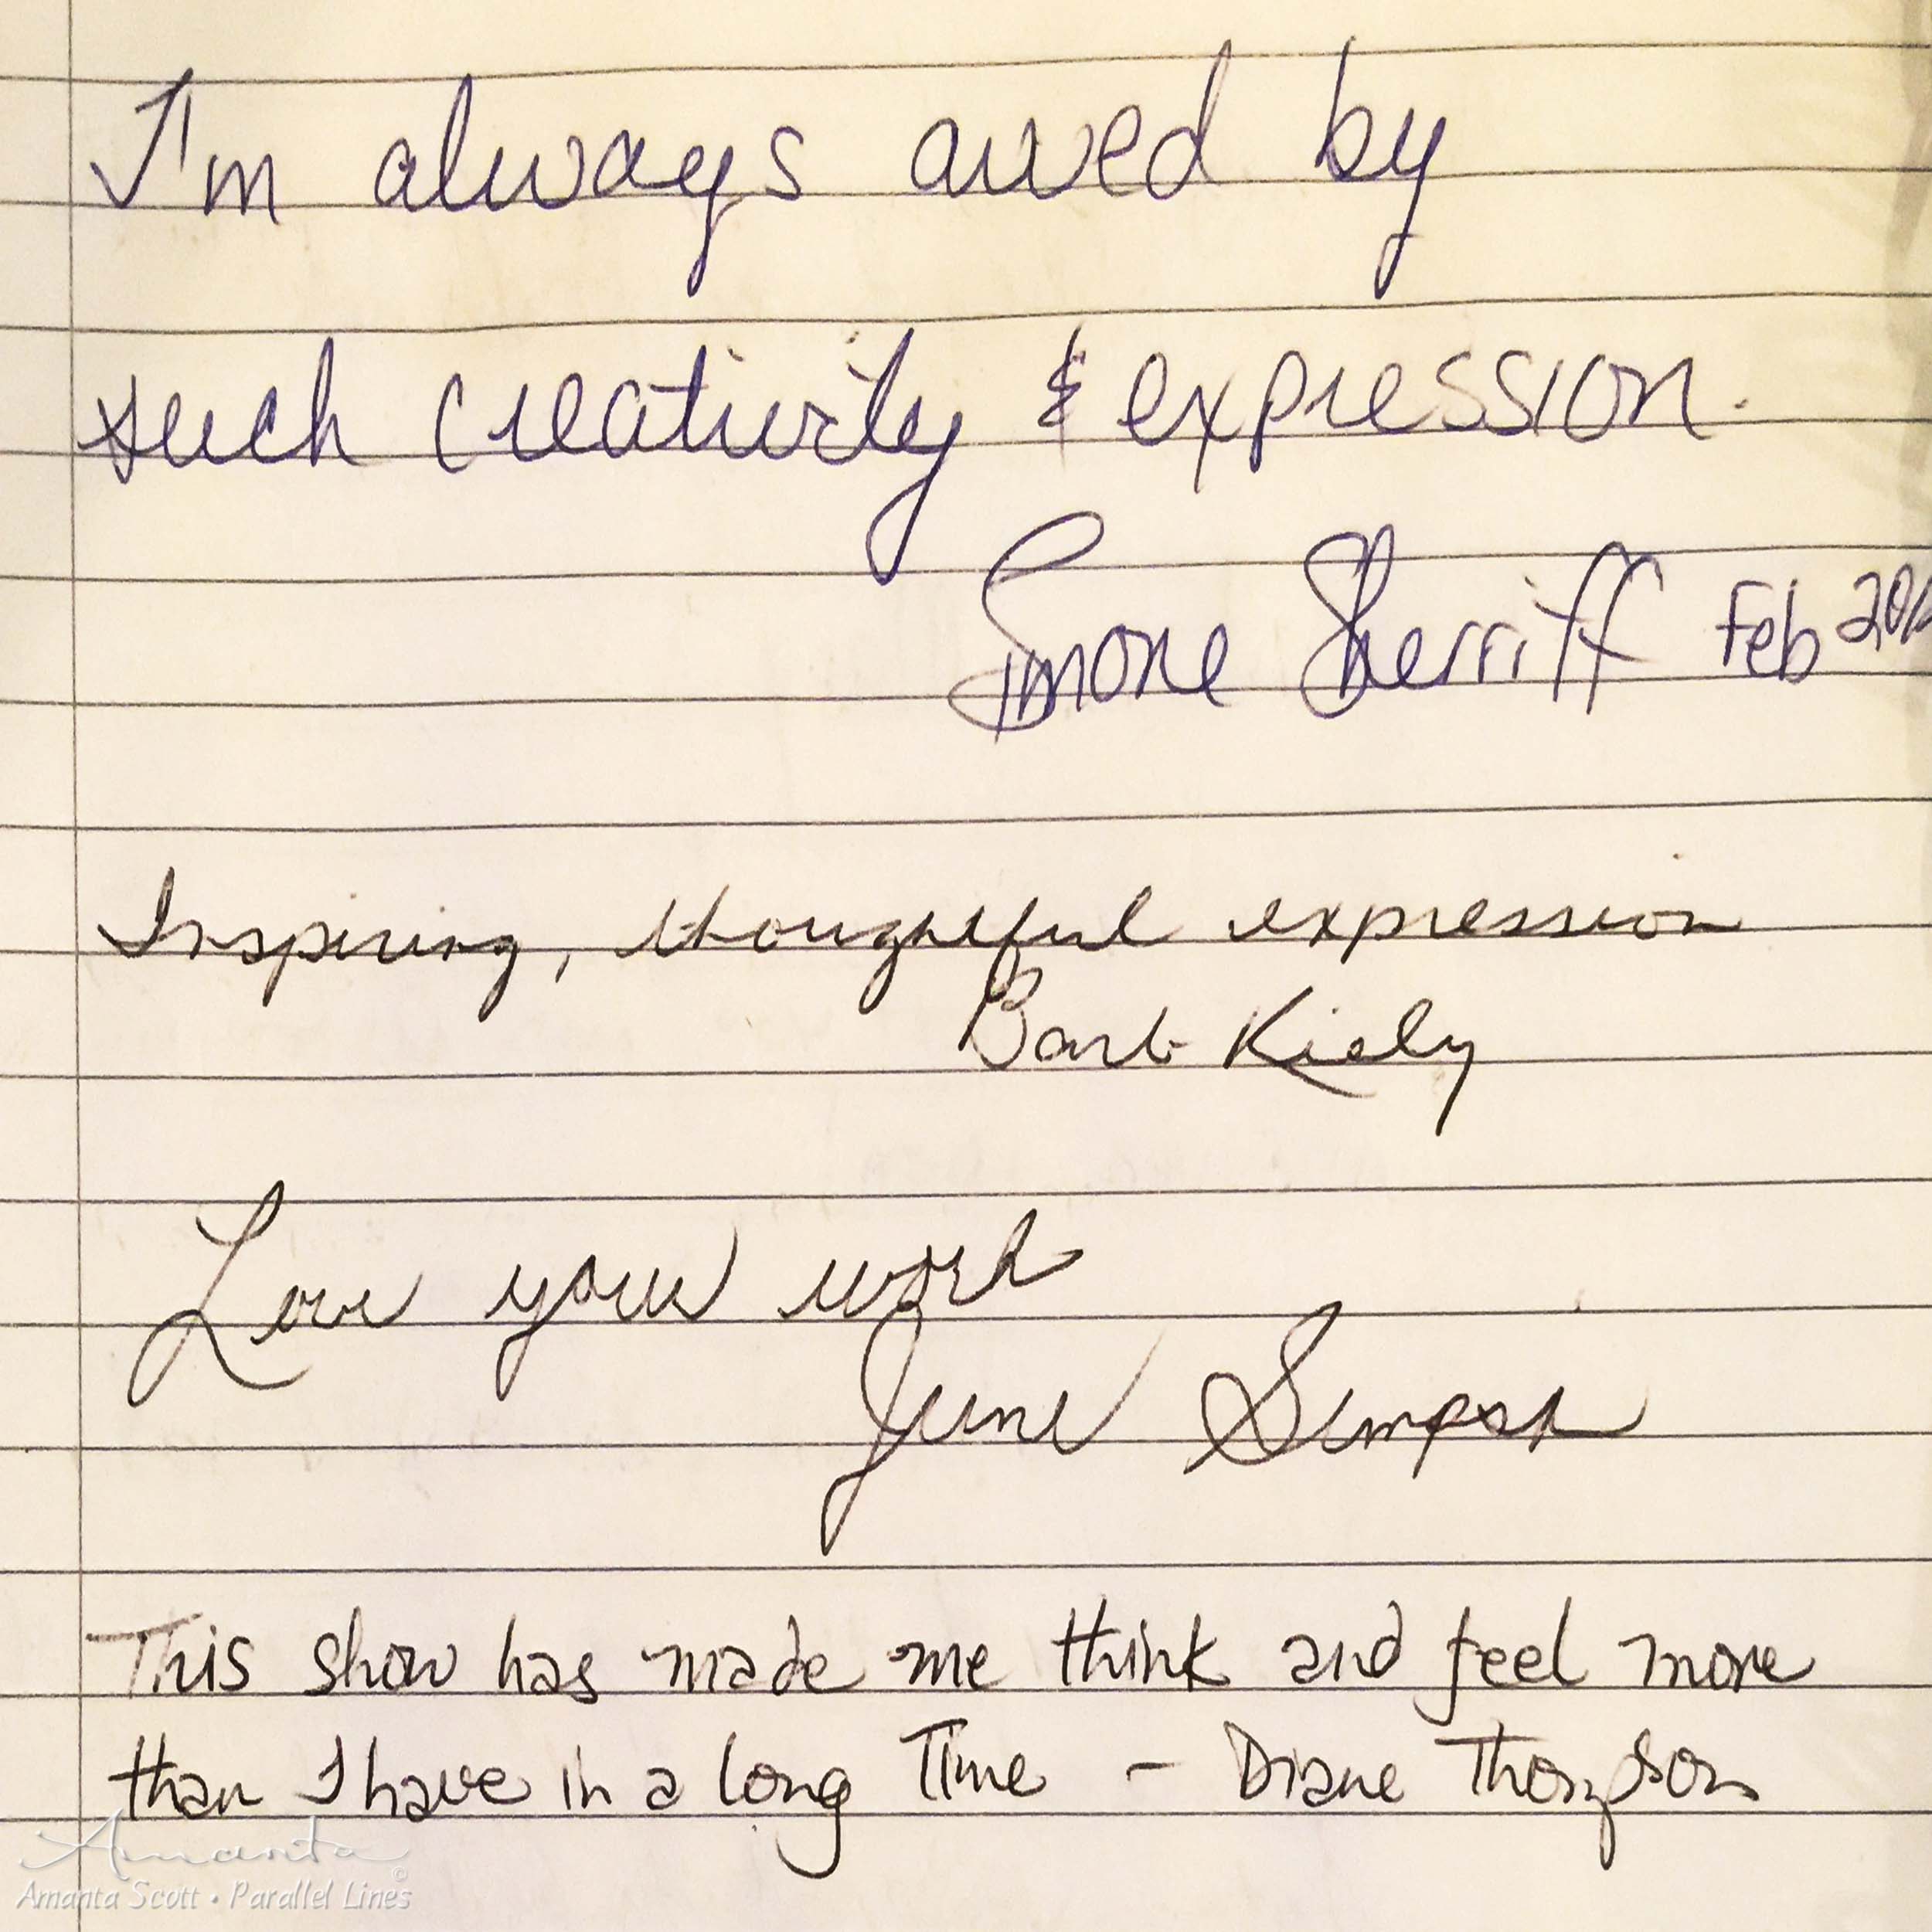 I'm always awed by
such creativity & expression.
Simone Sherriff Feb
Inspiring, thoughtful expression
Barb Kiely
Love your work
June Simpson
This show has made me think and feel more
than I have in a long Time - Diane Thompson
Amanta ©
Amanta Scott • Parallel Lines